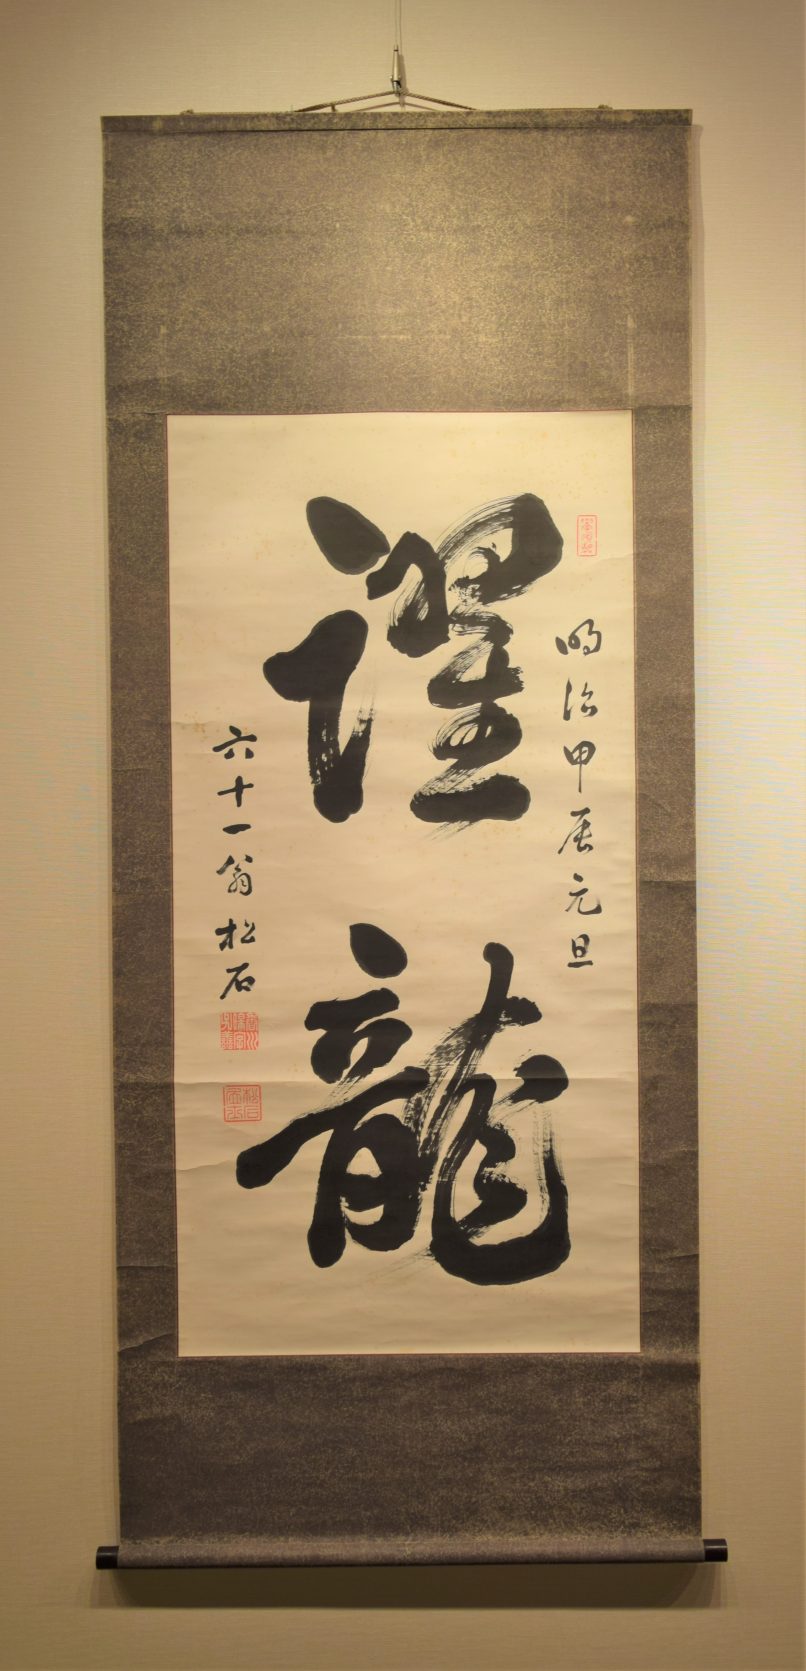 明治甲辰元旦
龍
六十一翁松石